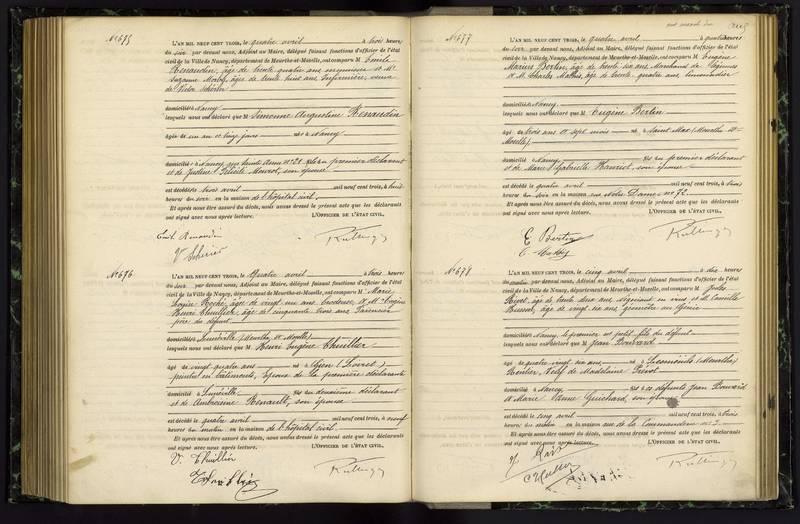 N° 675
L'AN MIL NEUF CENT TROIS, le quatre avril à trois heures
du soir par devant nous, Adjoint au Maire, délégué faisant fonctions d'officier de l'état
civil de la Ville de Nancy, département de Meurthe-et-Moselle, ont comparu M Emile
Renaudin, âgé de trente quatre ans, et Me
Suzanne âgée de trente huit ans, Infirmière, veuve
de
domicilié à Nancy
lesquels nous ont déclaré que M Simonne Augustine Renaudin
âgée de un an et vingt jours né à Nancy
domicilié à Nancy, rue Sainte Anne n° 28 fille du premier déclarant
et de Justine Félicité son épouse
est décédée le trois avril mil neuf cent trois, à huit
heures du soir en la maison de l'hôpital civil.
Et après nous être assuré du décès, nous avons dressé le présent acte que les déclarants
ont signé avec nous après lecture. L'OFFICIER DE L'ÉTAT CIVIL,
Emile Renaudin
N° 676
L'AN MIL NEUF CENT TROIS, le Quatre avril à trois heures
du soir par devant nous, Adjoint au Maire, délégué faisant fonctions d'officier de l'état
civil de la Ville de Nancy, département de Meurthe-et-Moselle, ont comparu M Marie
Louise Roche, âgée de vingt un ans, brodeuse, et M. Eugène
Henri Thuillier, âgé de cinquante trois ans
père du défunt
domiciliés à Lunéville (Meurthe et Moselle)
lesquels nous ont déclaré que M Henri Eugène Thuillier
âgé de vingt quatre ans né à Gien (Loiret)
peintre en bâtiments, époux de la première déclarante
domicilié à Lunéville fils du deuxième déclarant
et de Ambroisine Renault, son épouse
est décédé le quatre avril mil neuf cent trois, à neuf
heures du matin en la maison de l'hôpital civil.
Et après nous être assuré du décès, nous avons dressé le présent acte que les déclarants
ont signé avec nous après lecture. L'OFFICIER DE L'ÉTAT CIVIL,
V. Thuillier
N° 677
L'AN MIL NEUF CENT TROIS, le quatre avril à quatre heures
du soir par devant nous, Adjoint au Maire, délégué faisant fonctions d'officier de l'état
civil de la Ville de Nancy, département de Meurthe-et-Moselle, ont comparu M Eugène
Marius Bertin, âgé de trente six ans, Marchand de
et M. Charles Mathis, âgé de trente quatre ans, Camionneur
domiciliés à Nancy
lesquels nous ont déclaré que M Eugène Bertin
âgé de trois ans et sept mois né à Saint Max (Meurthe et
Moselle)
domicilié à Nancy fils du premier déclarant
et de Marie Gabrielle son épouse
est décédé le quatre avril mil neuf cent trois, à trois
heures du soir en la maison rue Notre Dame n° 72.
Et après nous être assuré du décès, nous avons dressé le présent acte que les déclarants
ont signé avec nous après lecture. L'OFFICIER DE L'ÉTAT CIVIL,
E Bertin
N° 678
L'AN MIL NEUF CENT TROIS, le cinq avril à dix heures
du matin par devant nous, Adjoint au Maire, délégué faisant fonctions d'officier de l'état
civil de la Ville de Nancy, département de Meurthe-et-Moselle, ont comparu M Jules
âgé de trente deux ans, négociant en vins et M. Camille
âgé de vingt six ans, au Génie
domiciliés à Nancy, le premier est petit fils du défunt
lesquels nous ont déclaré que M Jean Bouvard
âgé de quatre vingt six ans né à (Meurthe)
Rentier, Veuf de Madelaine
domicilié à Nancy fils de défunts Jean Bouvard
et Marie Anne Guichard, son épouse
est décédé le cinq avril mil neuf cent trois, à trois
heures du matin en la maison rue de la Commanderie n° 3.
Et après nous être assuré du décès, nous avons dressé le présent acte que les déclarants
ont signé avec nous après lecture. L'OFFICIER DE L'ÉTAT CIVIL,